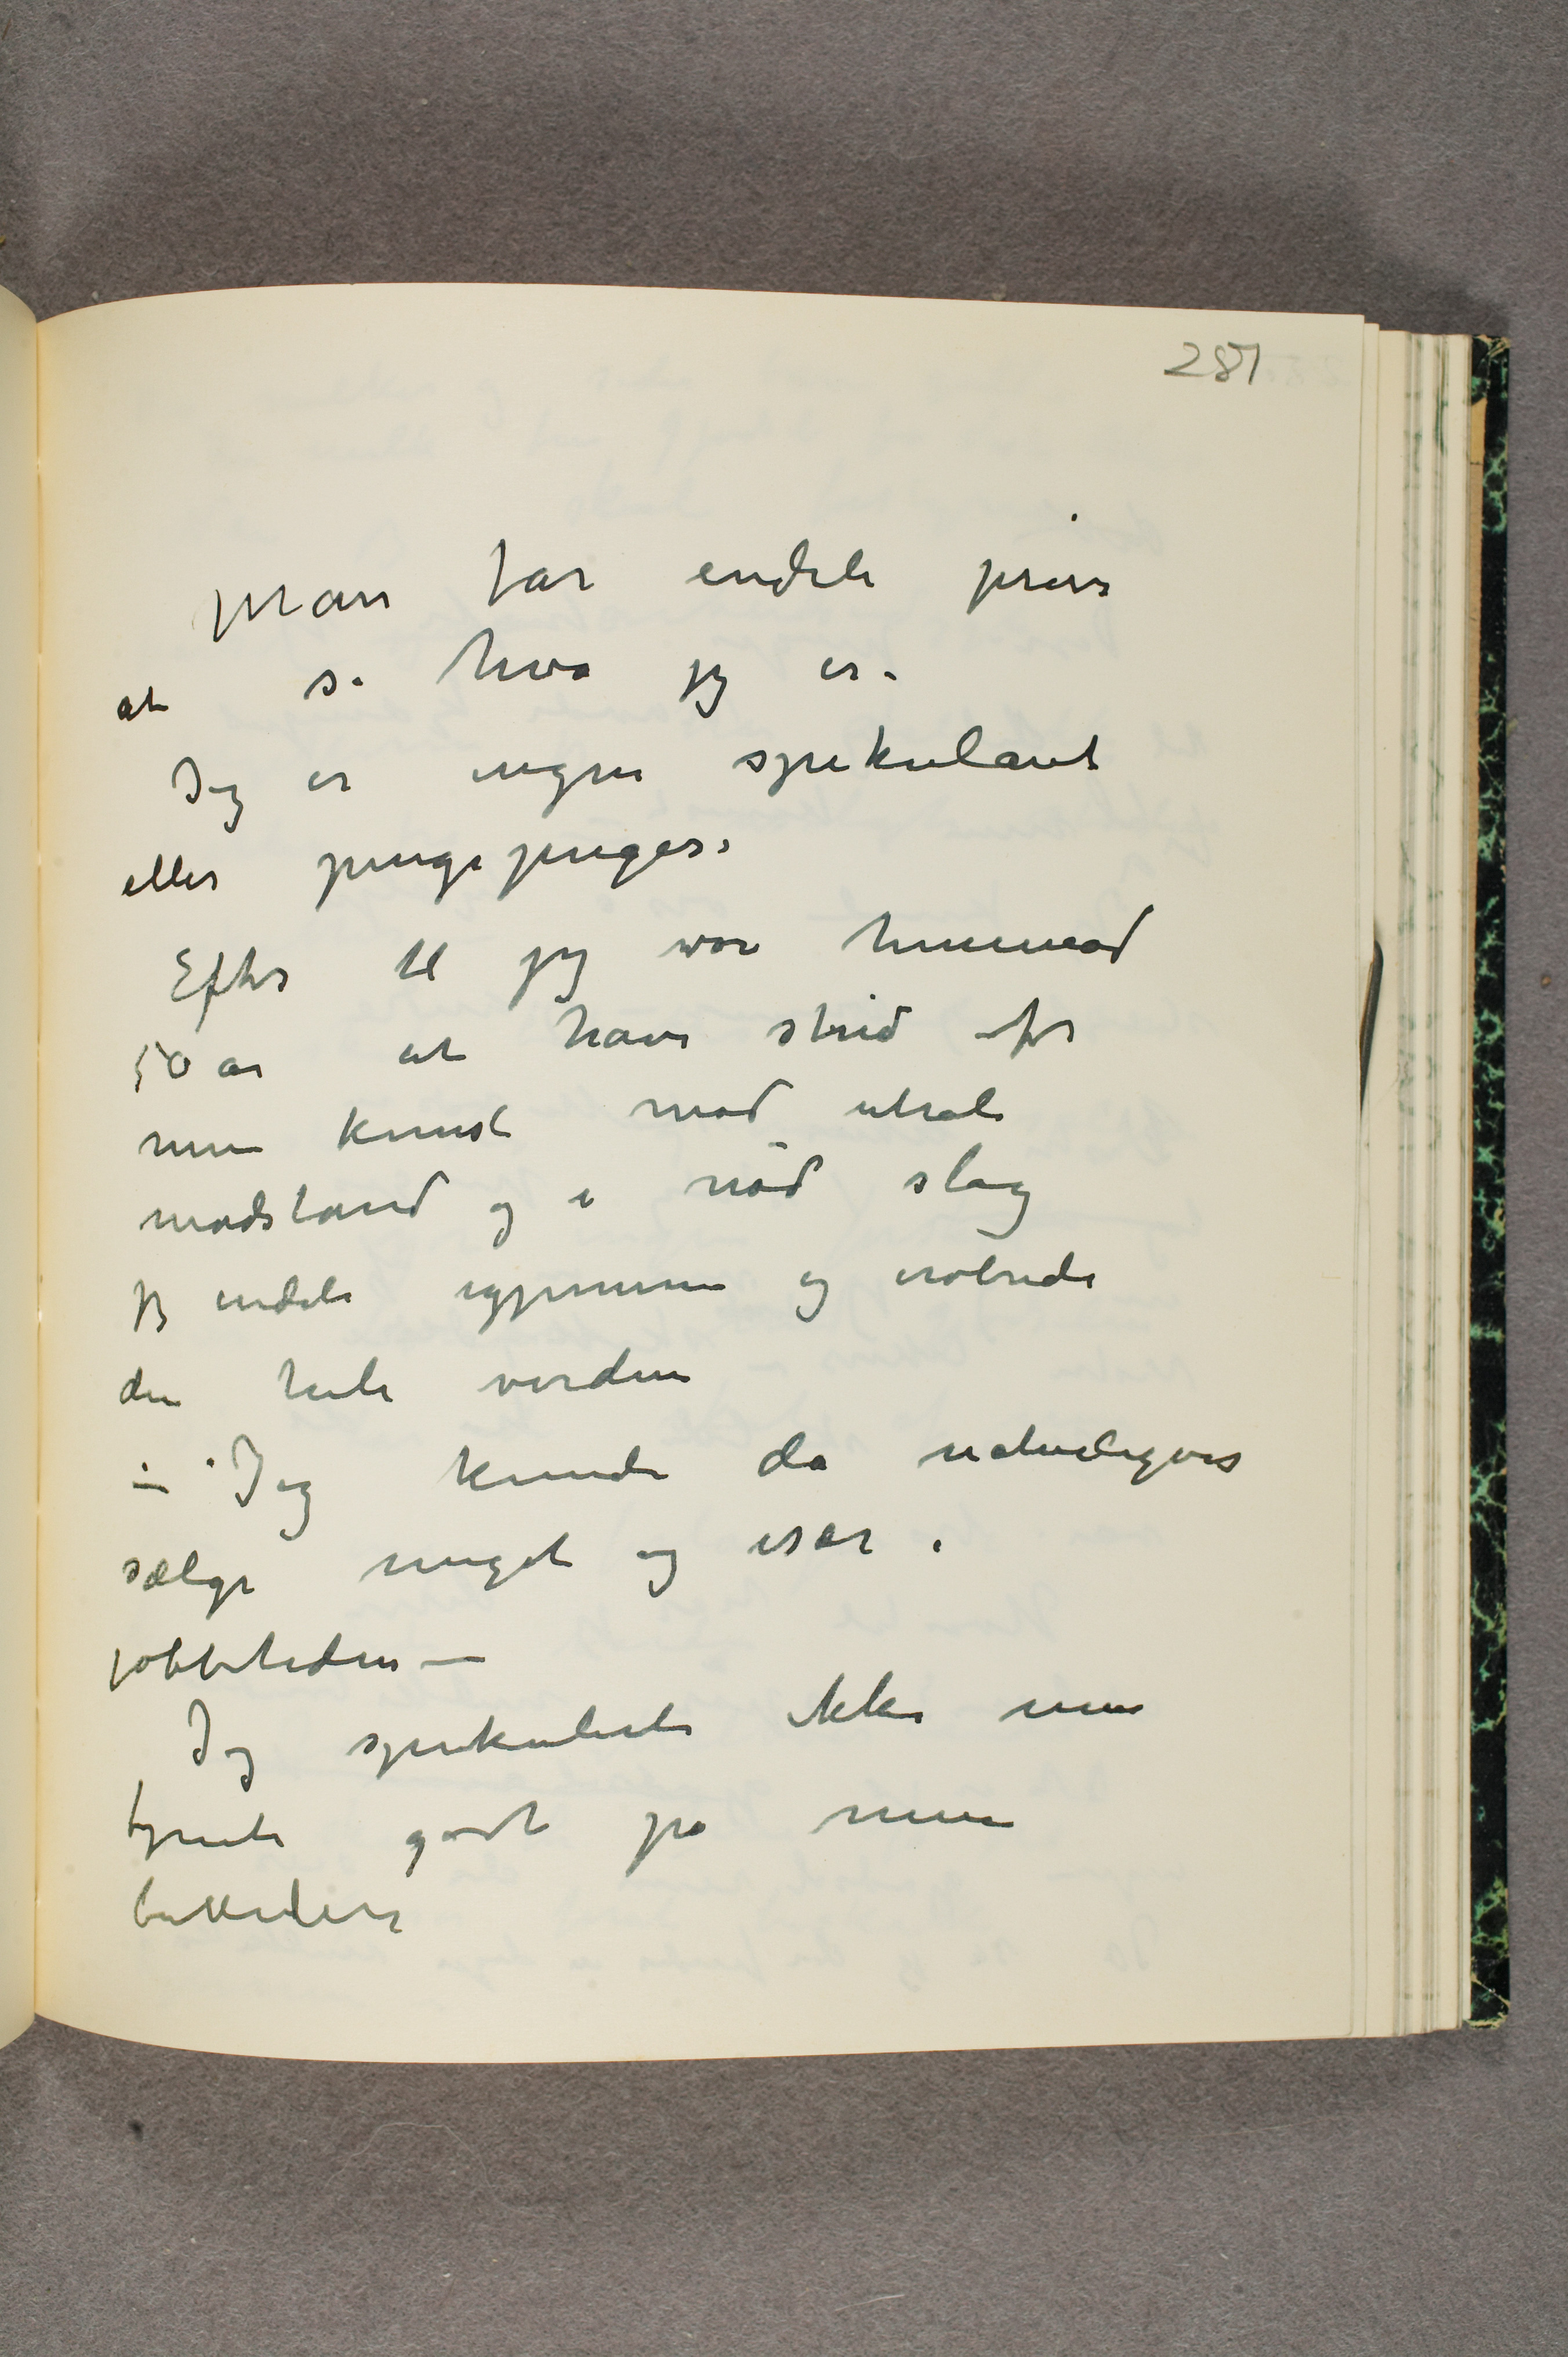 281
Man får endeli prøve
at se hva jeg er.
Jeg er ingen spekulant
eller pengepuger.
Efter til jeg var henimod
50 år at have strid for
min kunst mod utrolig
modstand og i nød slog
jeg endeli igjennem og erobrede
den hele verden
– Jeg kunde da naturligvis
sælge meget og især i
jobbetiden –
Jeg spekulerte ikke men
tjente godt på mine
billeder